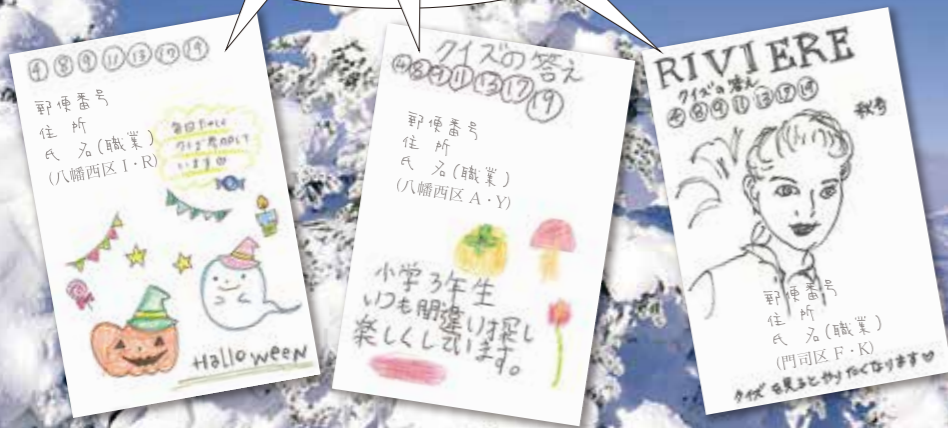 ④⑧⑨⑪⑬⑰⑲
郵便番号
住 所
氏 名(職業)
(八幡西区 I・R)
毎回たのしく
クイズ参加して
います
Halloween
クイズの答え
④⑧⑨⑪⑬⑰⑲
郵便番号
住 所
氏 名(職業)
(八幡西区 A・Y)
小学3年生
いつも間違い探し
楽しくしています。
RIVIERE
クイズの答え
④⑧⑨⑪⑬⑰⑲
秋号
郵便番号
住 所
氏 名(職業)
(門司区 F・K)
クイズを見るとやりたくなります